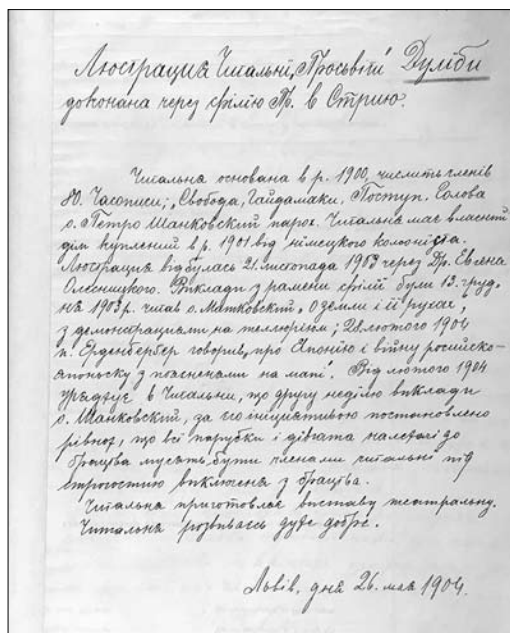 Люстрация Читальнї „Просьвіти" Думби
доконана через філїю Пр. в Стрию.
Читальна основана в р. 1900, числить членів
80. Часописи; „Свобода, Гайдамаки, Поступ. Голова
о. Петро Шанковский парох. Читальна має власний
дім куплений в р. 1901 від німецкого колонїста.
Люстрация відбулась 21. листопада 1903 через Др. Евгена
Олесницкого. Виклади з рамени філїї були 13. груд-
ня 1903 р. читав о. Матковский „О земли і її рухах",
з демонстрациями на телюрію; 28 лютого 1904
п. Ерденбергер говорив „про Японїю і війну росийско-
японьску з поясненами на мапі". Від лютого 1904
уряджує в Читальни, що другу недїлю виклади
о. Шанковский, за го інїциятивою постановлено
рівнож, що всї парубки і дївчата належачі до
брацтва мусять бути членами читальнї під
строгостию виключеня з брацтва.
Читальна приготовлає виставу театральну.
Читальна розвиваєсь дуже добре.
Львів, дня 26. мая 1904.